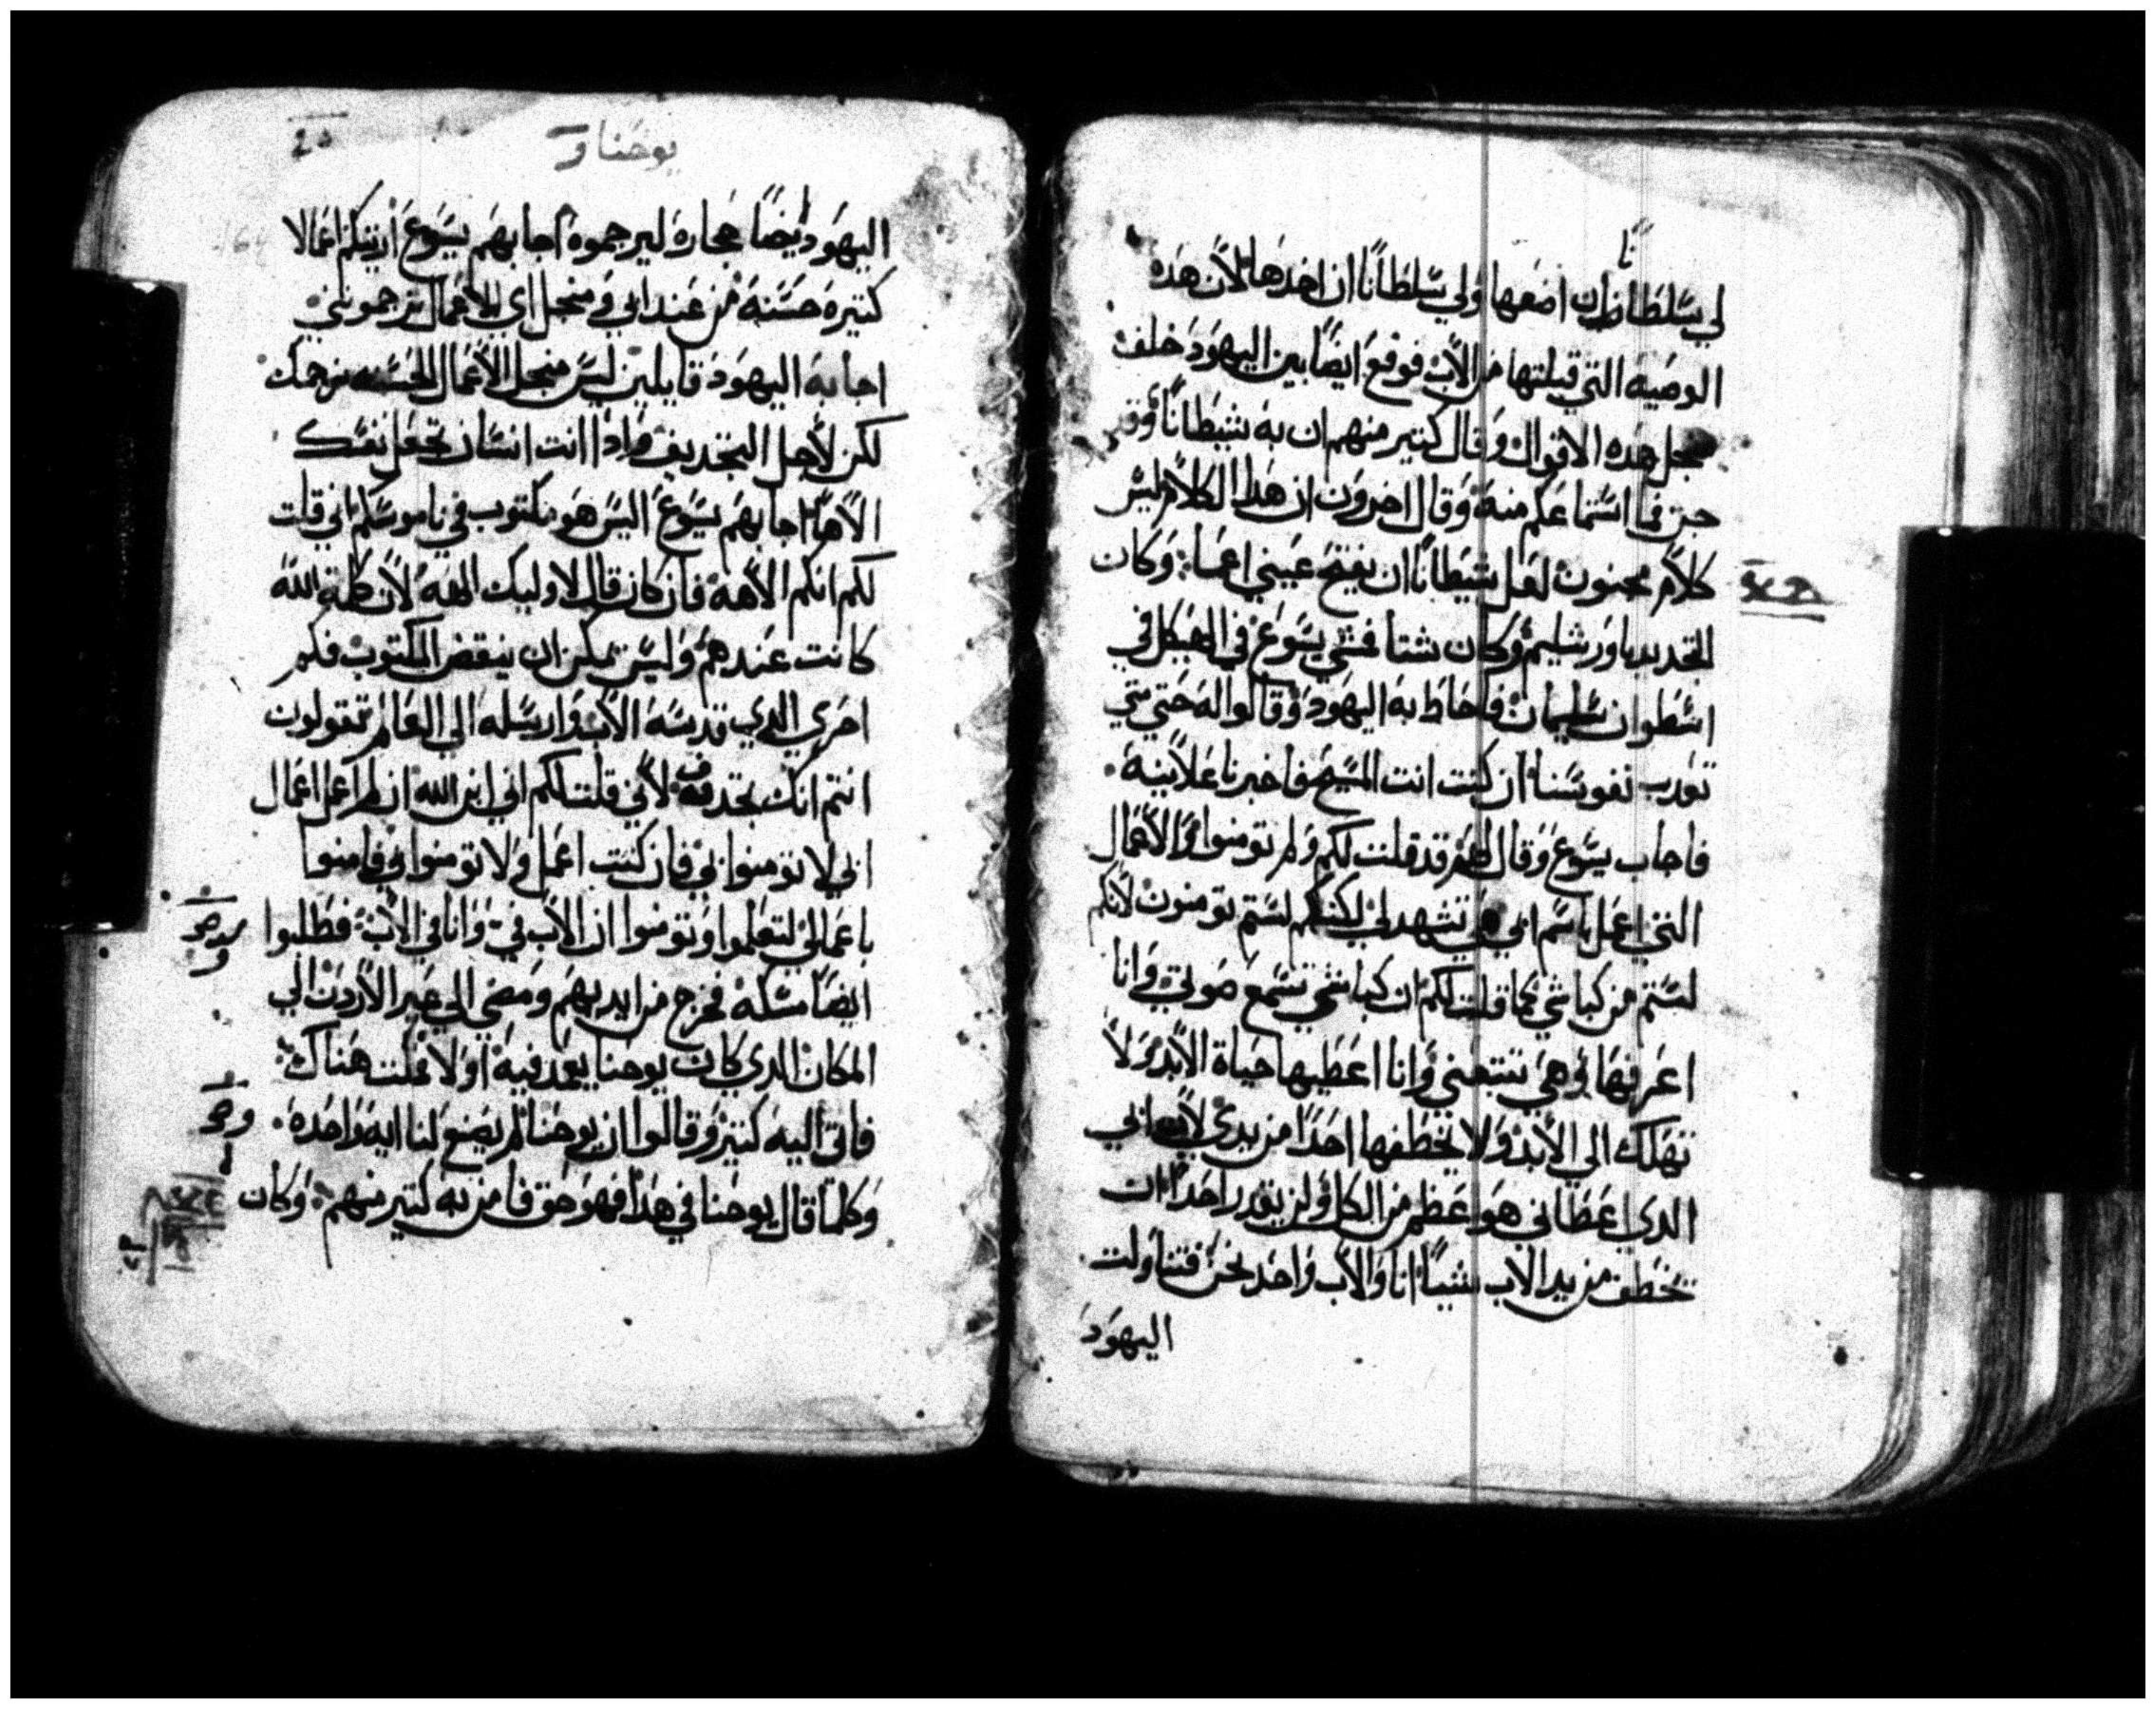 نًا
لي سلطانًا ان اضعها ولي سلطانًا ان اخدها لان هده
الوصيه التي قبلتها من الاب فوقع ايضًا بين اليهود خلف
منجل هده الاقوال وقال كتير منهم ان به شيطانًا وقد
جن فما استماعكم منه وقال اخرون ان هدا الكلام ليس
كلام مجنون لعل شيطانًا ان يفتح عيني اعما وكان
التجديد باورشليم وكان شتا فمشي يسوع في الهيكل في
اسطوان سليمان فاحاط به اليهود وقالوا له حتي متي
تعدب نفوسنا ان كنت انت المسيح فاخبرنا علانيه
فاجاب يسوع وقال لهم قد قلت لكم ولم تومنوا والاعمال
التي اعمل باسم ابي هي تشهد لي لكنكم لستم تومنون لانكم
لستم من كباشي كما قلت لكم ان كباشي تسمع صوتي وانا
اعرفها وهي تتبعني وانا اعطيها حياة الابد ولا
تهلك الي الابد ولا يخطفها احدًا من يدي لان ابي
الدي اعطاني هو اعظم من الكل ولن يقدر احدًا ان
يخطف من يد الاب شيئًا انا والاب واحد نحن فتناولت
اليهود
يوحنا
اليهود ايضًا حجاره ليرجموه اجابهم يسوع اريتكم اعمالا
كتيره حسنه من عند ابي فمنجل اي الاعمال ترجموني
اجابه اليهود قايلين ليس منجل الاعمال الحسنه نرجمك
لكن لاجل التجديف وادا انت انسان تجعل نفسك
الاهًا اجابهم يسوع اليس هو مكتوب في ناموسكم اني قلت
لكم انكم الاهه فان كان قال لاوليك الهه لان كلمة الله
كانت عندهم وليس يمكن ان ينقض المكتوب فكم
احري الدي قدسه الاب وارسله الي العالم تقولون
انتم انك تجدف لاني قلت لكم اني ابن الله ان لم اعمل اعمال
ابي لا تومنوا بي فان كنت اعمل ولا تومنوا بي فامنوا
باعمالي لتعلموا وتومنوا ان الاب في وانا في الاب فطلبوا
ايضًا مسكه فخرج من ايديهم ومضي الي عبر الاردن الي
المكان الدي كان يوحنا يعمد فيه اولا فمكت هناك
فاتي اليه كتير وقالوا ان يوحنا لم يضع لنا ايه واحده
وكلما قال يوحنا في هدا فهو حق فامن به كتير منهم وكان